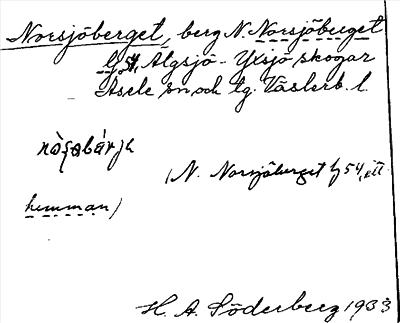 Norsjöberget, berg N. Norsjöberget
lj 54, Älgsjö - Yxsjö skogar
Åsele sn. och tg. Västerb. l.
(N. Norsjöberget lj 54, ett
hemman)
H. A. Söderberg 1933